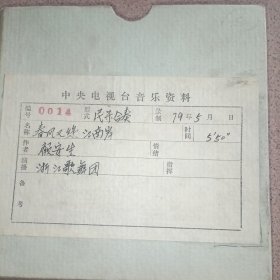 中央电视台音乐资料
编号 0014 形式 民乐合奏 录制 79年5月 日
名称 春风又绿江南岸 时间 5'50"
作者 顾安生 情绪
演播 浙江歌舞团 指挥
备考